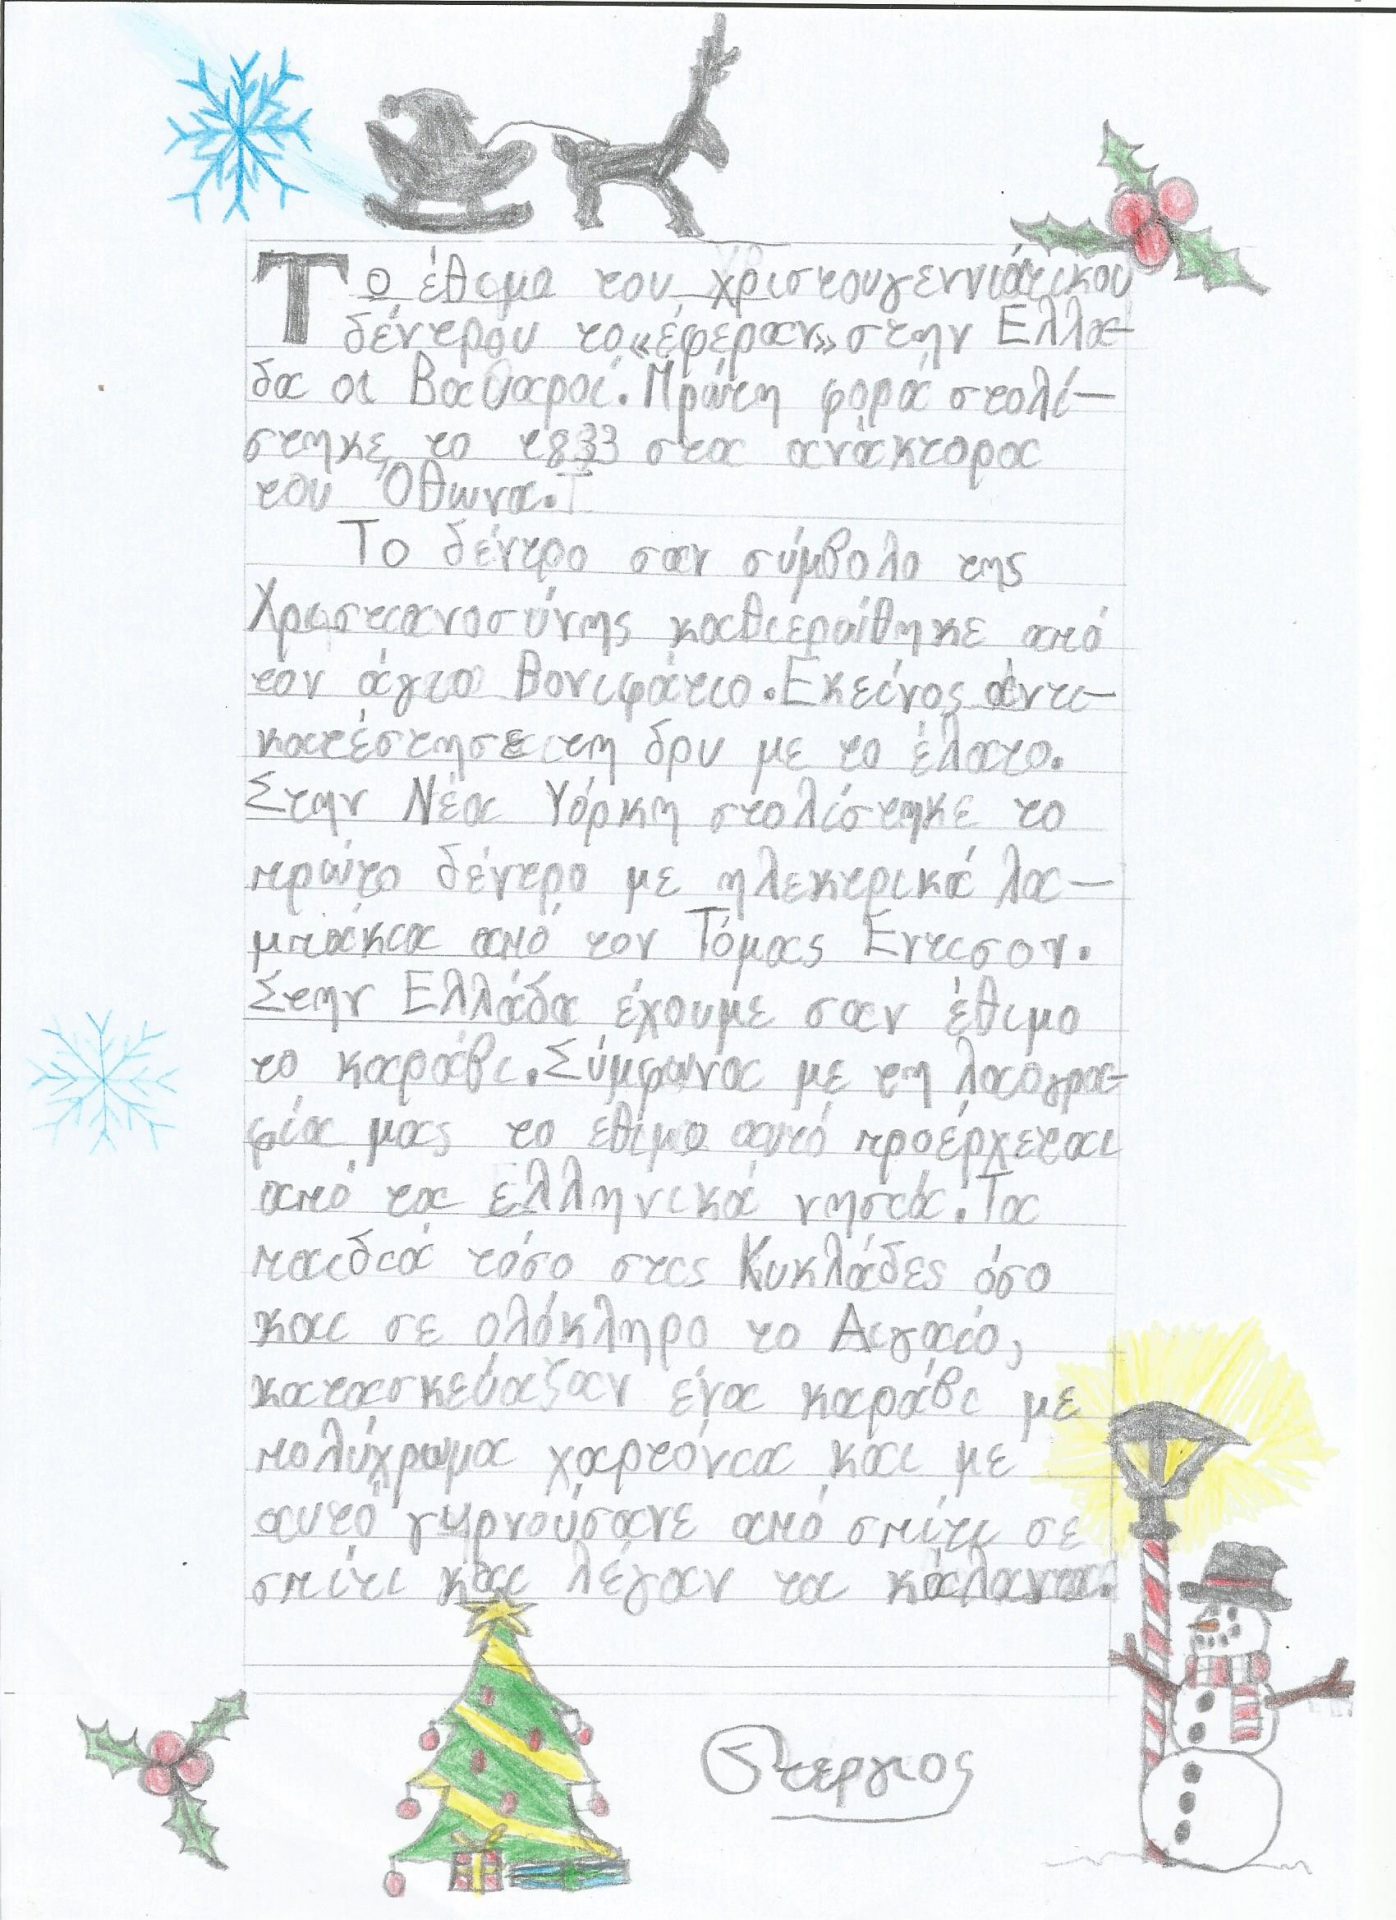 Το έθιμο του χριστουγεννιάτικου
δέντρου το «έφεραν» στην Ελλά-
δα οι Βαυαροί. Πρώτη φορά στολί-
στηκε το 1833 στα ανάκτορα
του Όθωνα.
Το δέντρο σαν σύμβολο της
Χριστιανοσύνης καθιερώθηκε από
τον άγιο Βονιφάτιο. Εκείνος αντι-
κατέστησε τη δρυ με το έλατο.
Στην Νέα Υόρκη στολίστηκε το
πρώτο δέντρο με ηλεκτρικά λα-
μπάκια από τον Τόμας Εντισον.
Στην Ελλάδα έχουμε σαν έθιμο
το καράβι. Σύμφωνα με τη λαογρα-
φία μας το έθιμο αυτό προέρχεται
από τα ελληνικά νησιά. Τα
παιδιά τόσο στις Κυκλάδες όσο
και σε ολόκληρο το Αιγαίο,
κατασκεύαζαν ένα καράβι με
πολύχρωμα χαρτόνια και με
αυτό γυρνούσανε από σπίτι σε
σπίτι και λέγαν τα κάλαντα.
Στεργιος